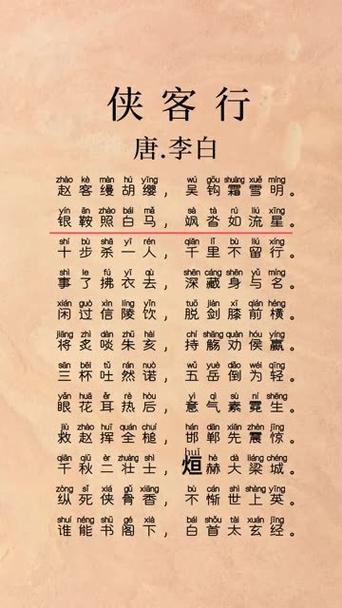 侠客行
唐.李白
zhào kè màn hú yīng wú gōu shuāng xuě míng
赵客缦胡缨，吴钩霜雪明。
yín ān zhào bái mǎ sà tà rú liú xīng
银鞍照白马，飒沓如流星。
shí bù shā yī rén qiān lǐ bù liú xíng
十步杀一人，千里不留行。
shì le fú yī qù shēn cáng shēn yǔ míng
事了拂衣去，深藏身与名。
xián guò xìn líng yǐn tuō jiàn xī qián héng
闲过信陵饮，脱剑膝前横。
jiāng zhì dàn zhū hài chí shāng quàn hóu yíng
将炙啖朱亥，持觞劝侯嬴。
sān bēi tǔ rán nuò wǔ yuè dào wéi qīng
三杯吐然诺，五岳倒为轻。
yǎn huā ěr rè hòu yì qì sù ní shēng
眼花耳热后，意气素霓生。
jiù zhào huī quán chuí hán dān xiān zhèn jīng
救赵挥全槌，邯郸先震惊。
qiān qiū èr zhuàng shì huī hè dà liáng chéng
千秋二壮士，烜赫大梁城。
zòng sǐ xiá gǔ xiāng bù cán shì shàng yīng
纵死侠骨香，不惭世上英。
shuí néng shū gé xià bái shǒu tài xuán jīng
谁能书阁下，白首太玄经。